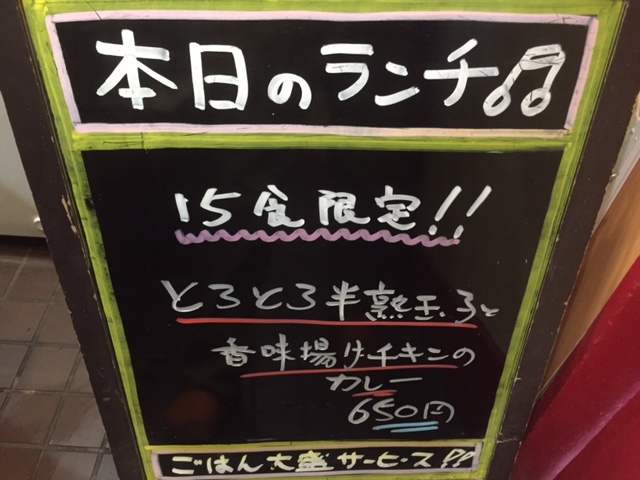 本日のランチ♫
15食限定!!
とろとろ半熟玉子と
香味揚げチキンの
カレー
650円
ごはん大盛サービス!!